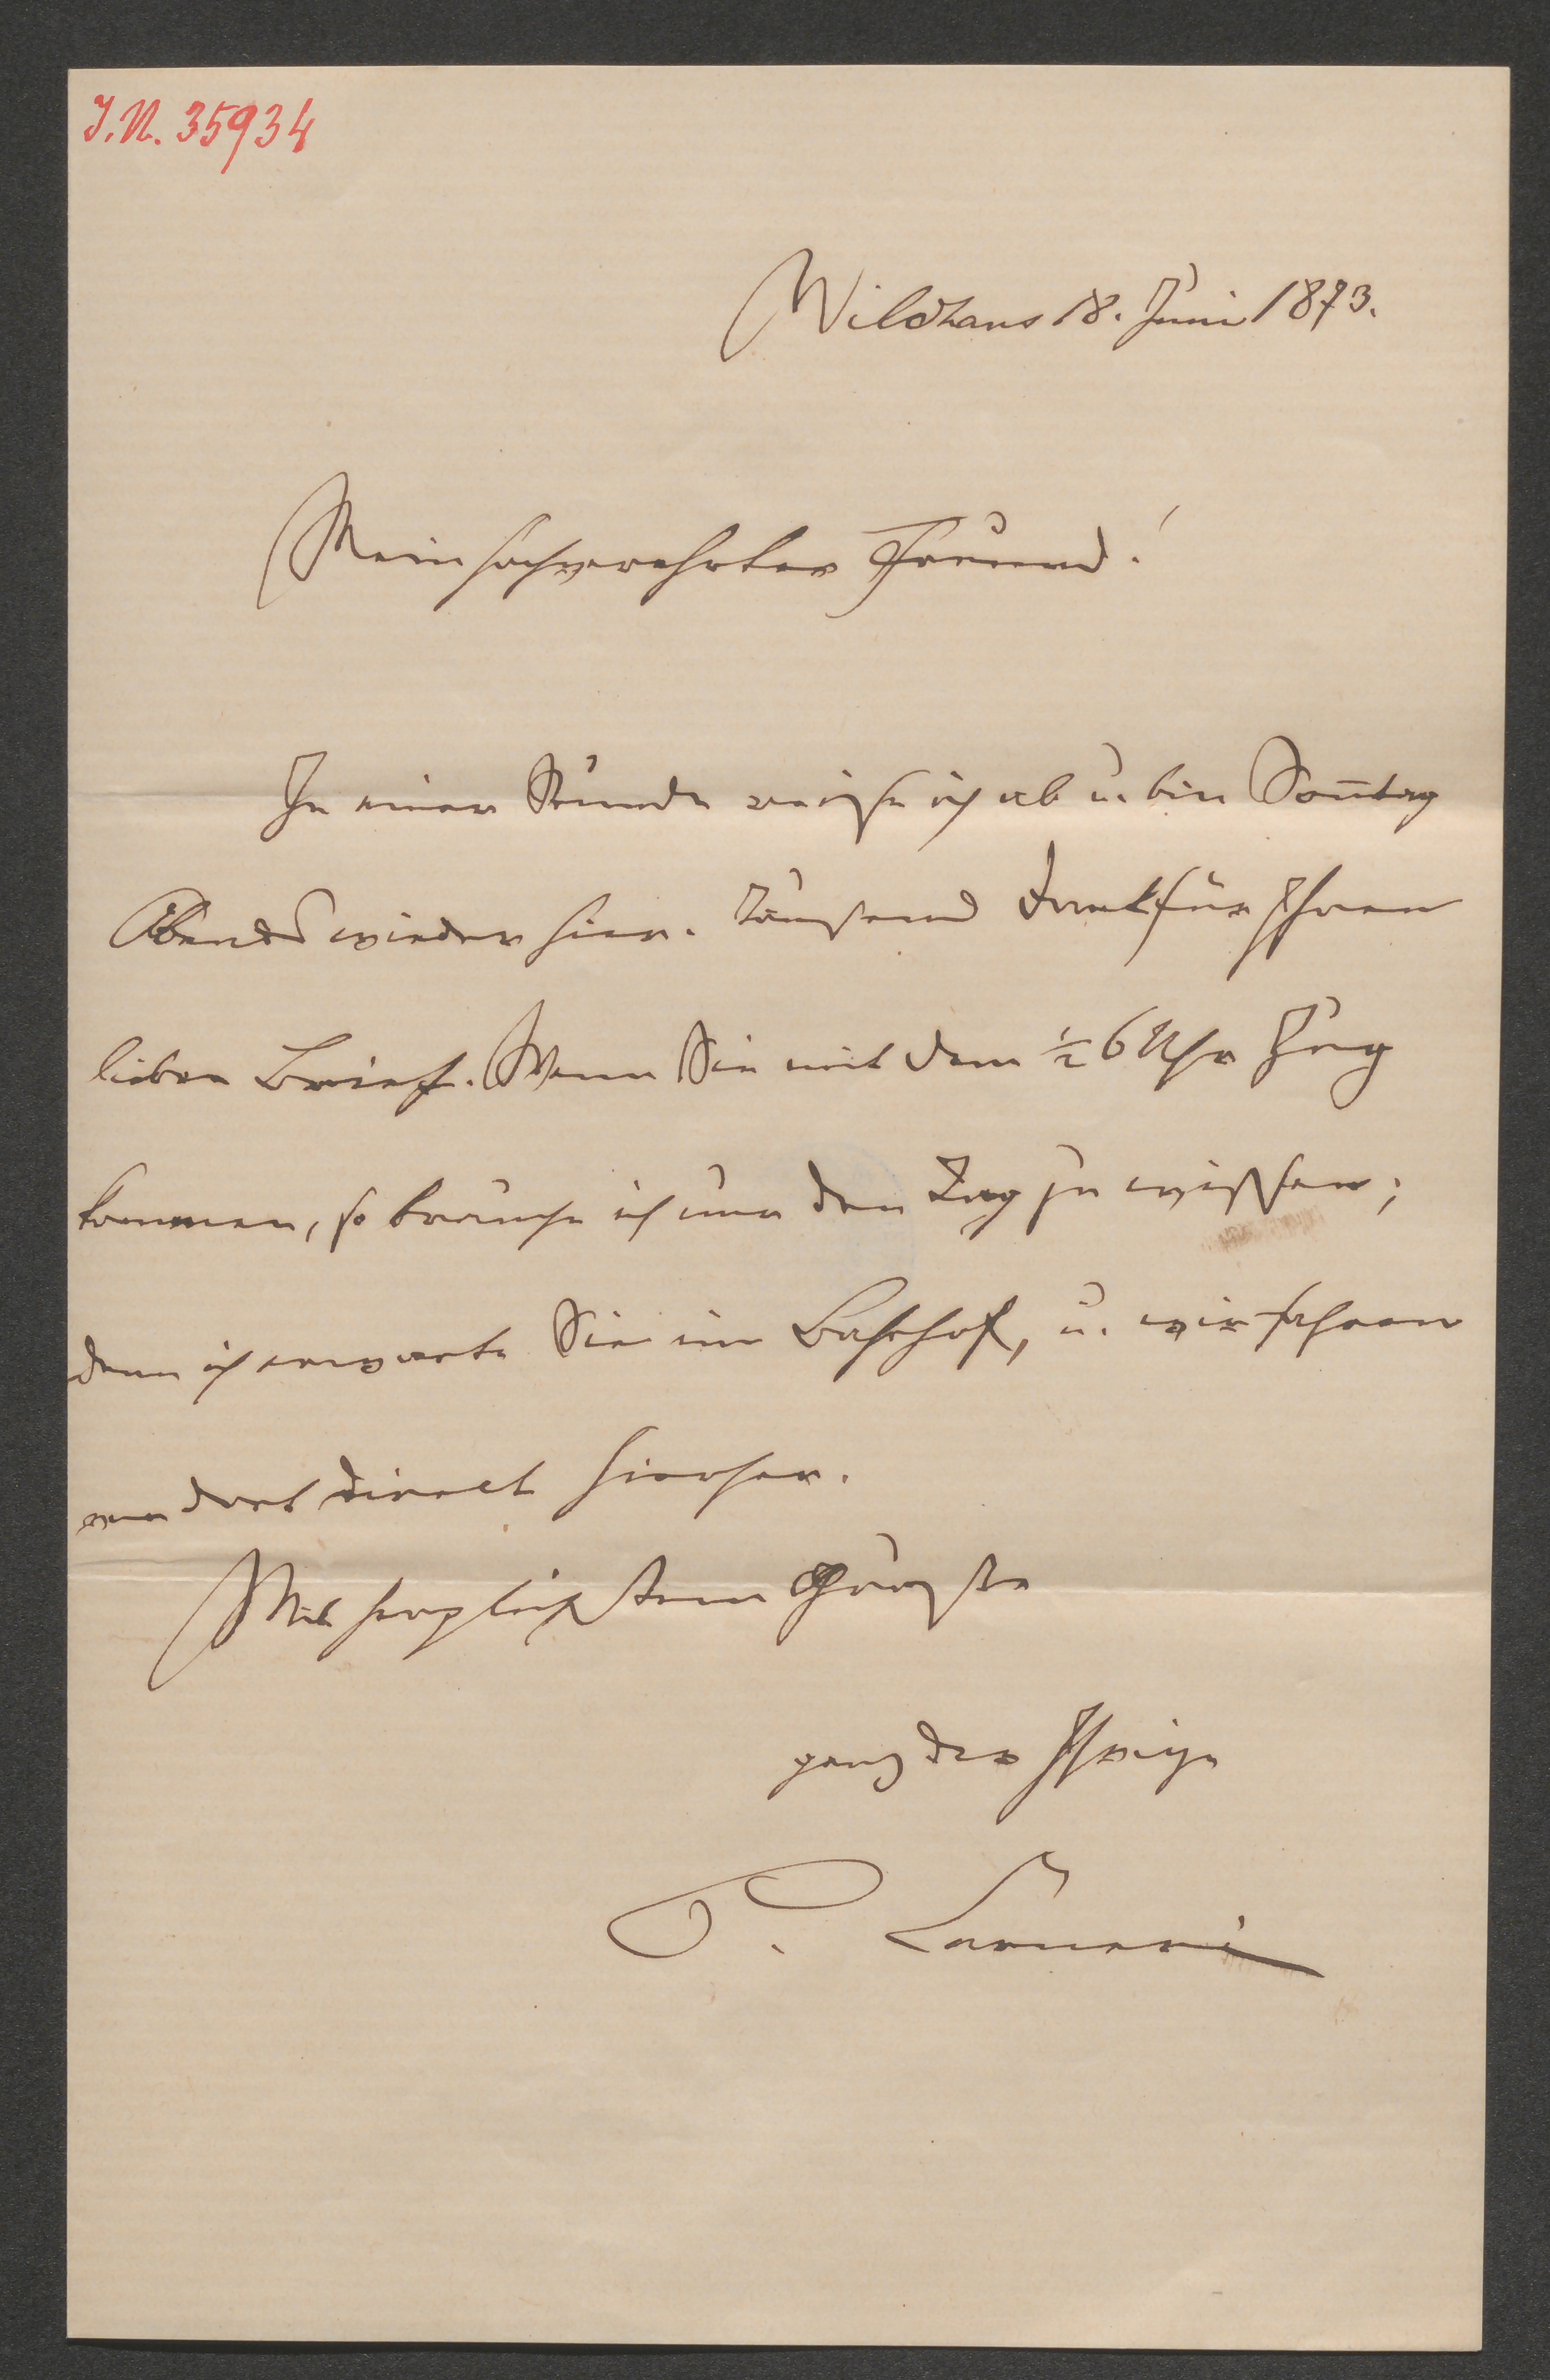 I.N. 35934
Wildhaus 18. Juni 1873.
Mein hochverehrter Freund!
In einer Stunde reise ich ab u. bin Sontag
Abends wieder hier. Tausend Dank für Ihren
lieben Brief. Wenn Sie mit dem ½ 6 Uhr Zug
kommen, so brauche ich nur den Tag zu wissen;
denn ich erwarte Sie im Bahnhof, u. wir fahren
von dort direct hierher.
Mit herzlichstem Gruße
ganz der Ihrige
B. Carneri